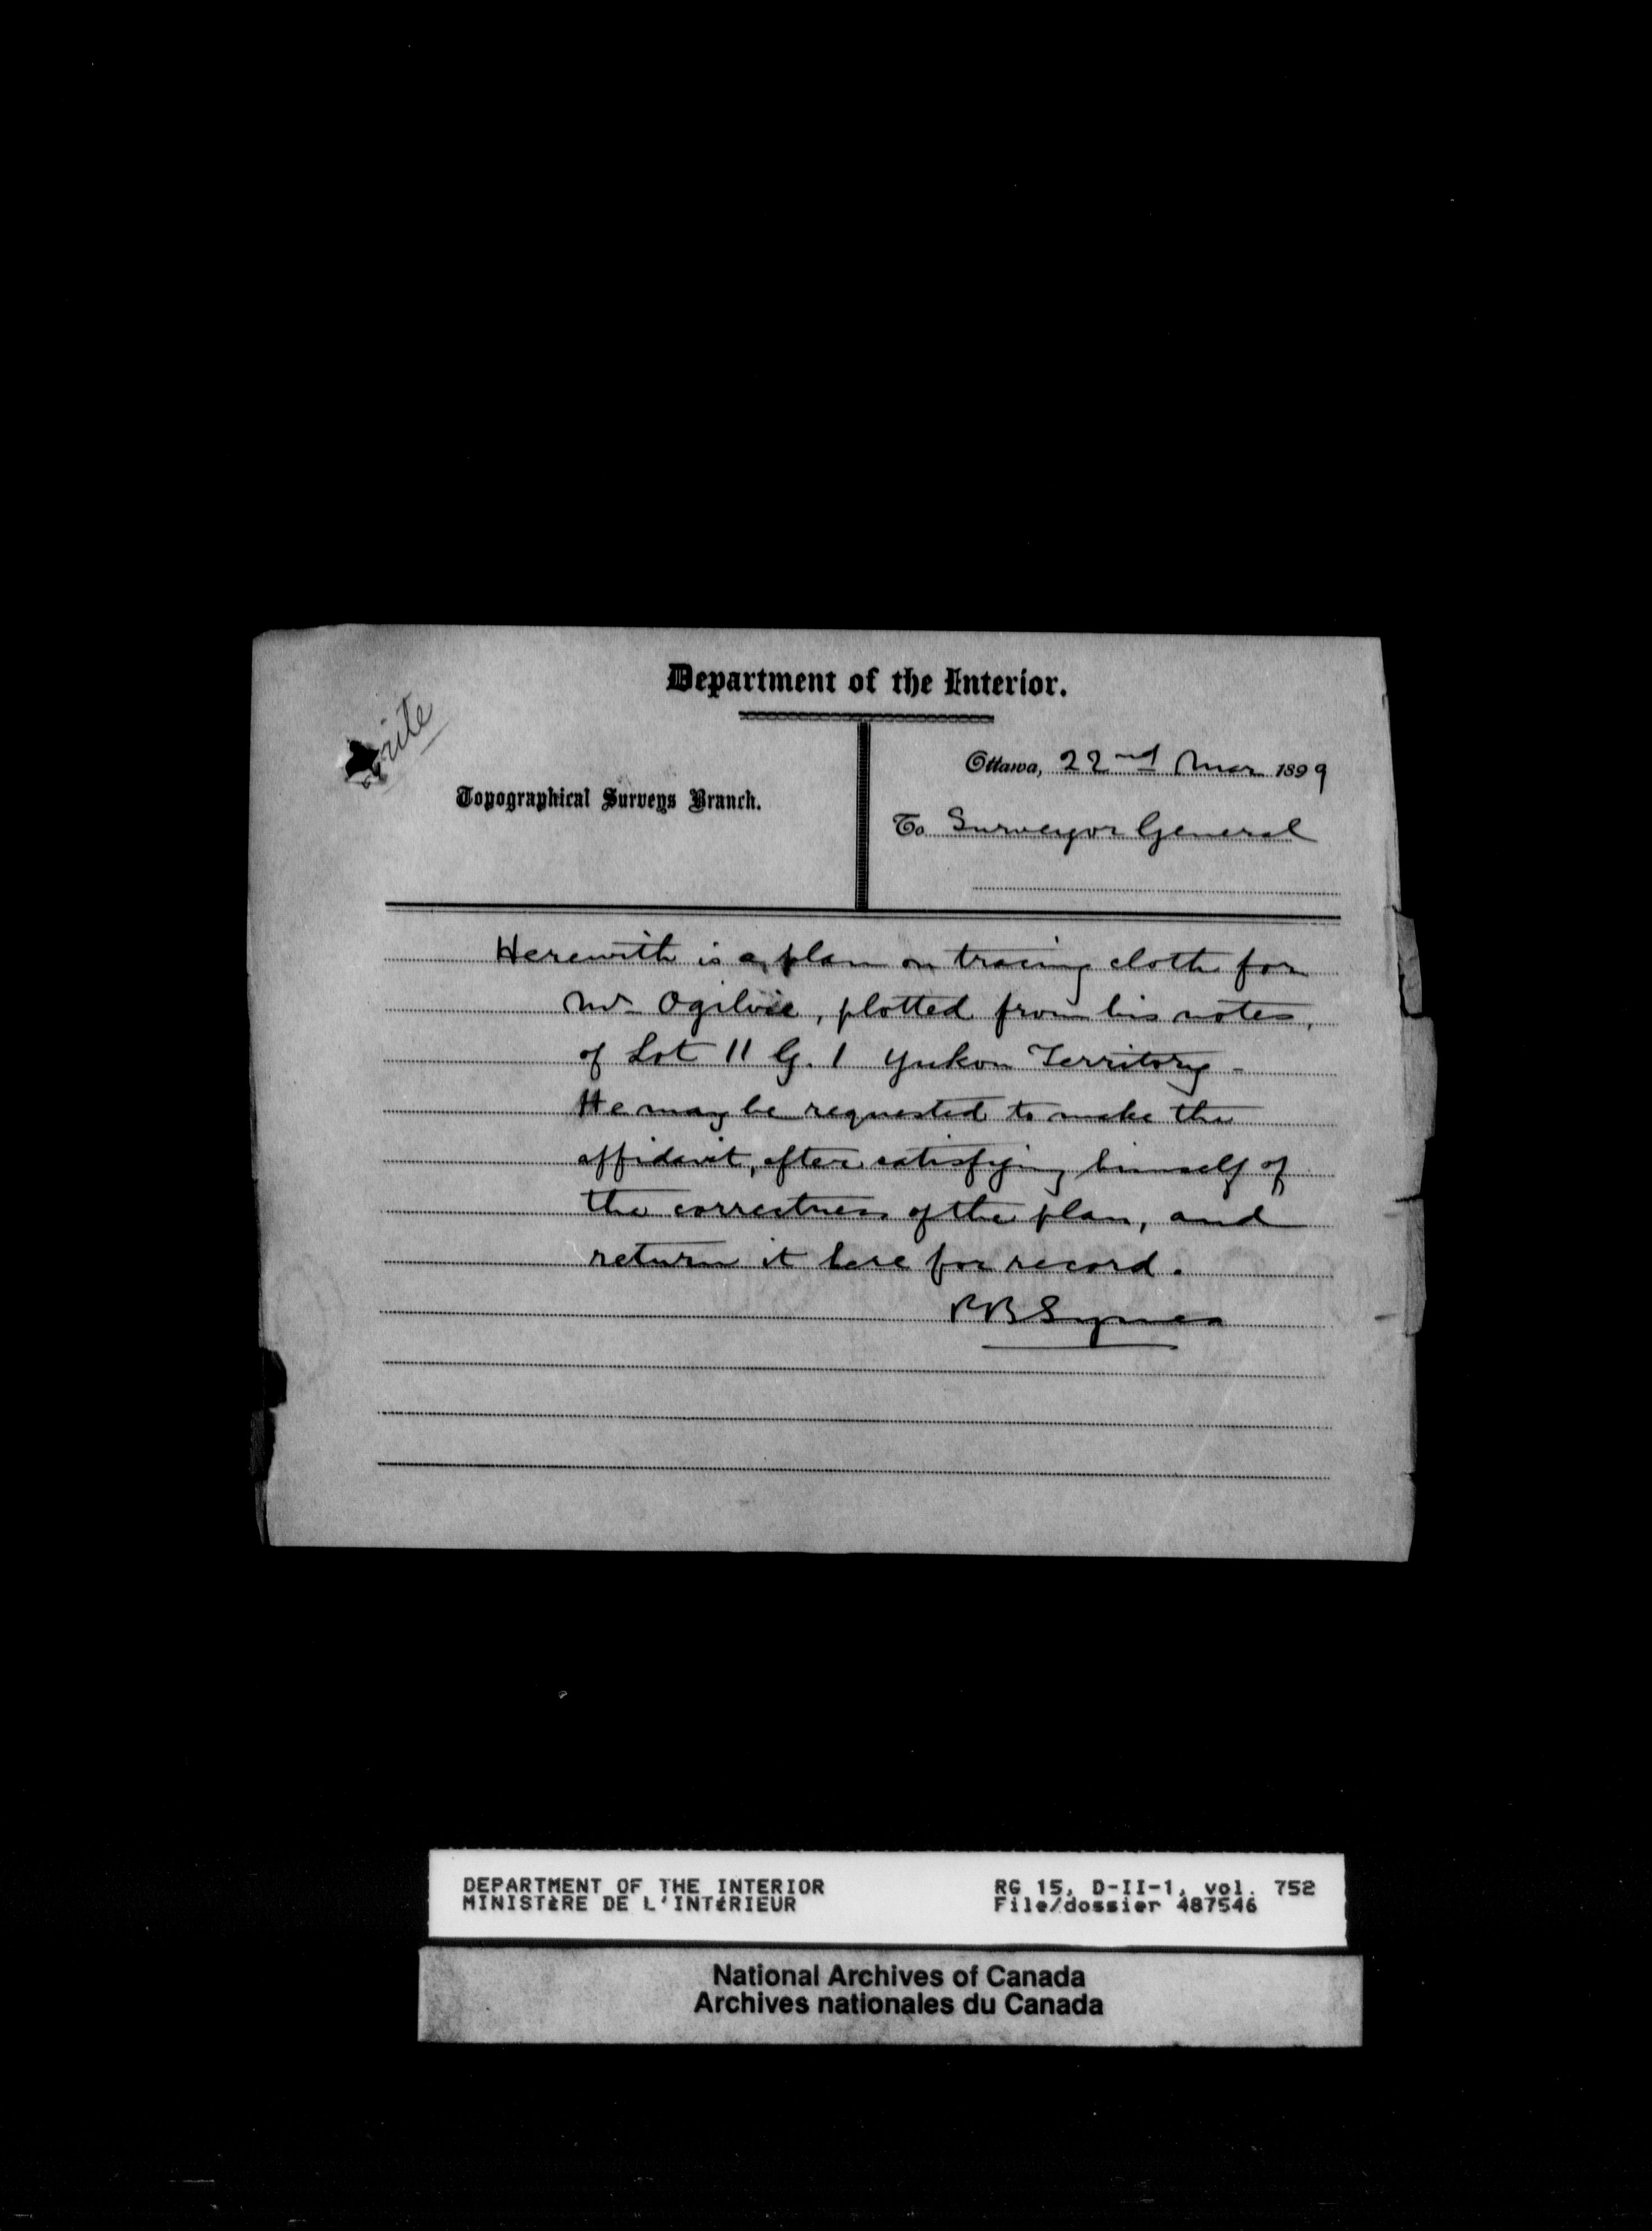 Department of the Interior.
Write
Topographical Surveys Branch.
Ottawa, 22nd Mar 1899
To Surveyor General
Herewith is a plan on tracing cloth for
Mr Ogilvie, plotted from his notes,
of Lot 11 G. 1 Yukon Territory -
He may be requested to make the
affidavit, after satisfying himself of
the correctness of the plan, and
return it here for record.
PBSymes
DEPARTMENT OF THE INTERIOR
MINISTÈRE DE L'INTÉRIEUR
RG 15, D-II-1, vol. 752
File/dossier 487546
National Archives of Canada
Archives nationales du Canada